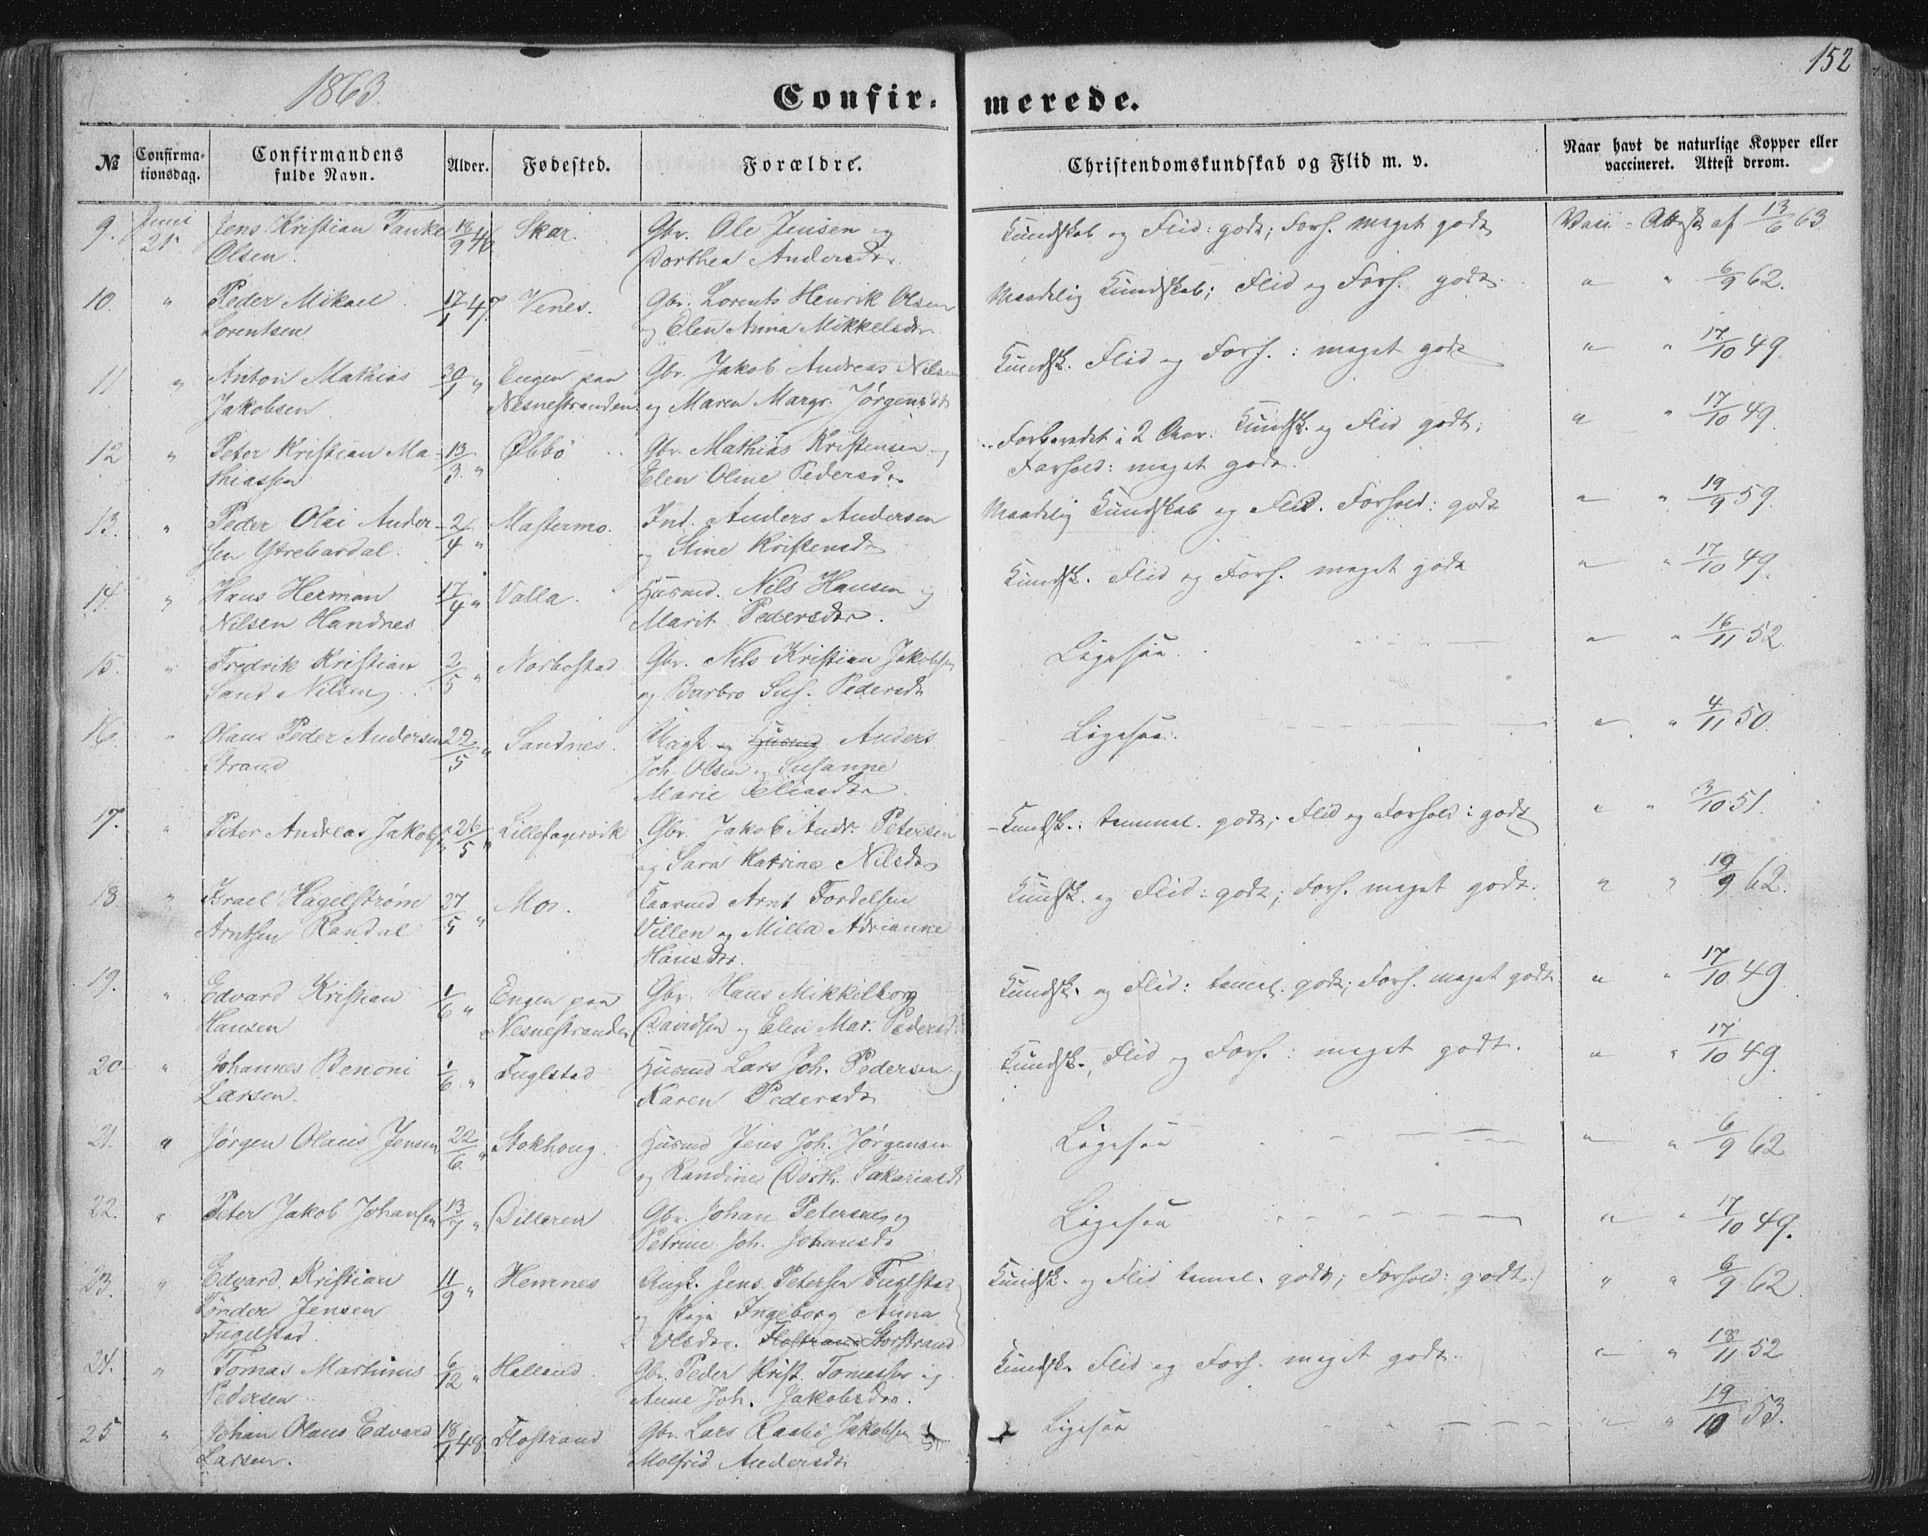 1863.
152
Confir- merede.
№ Confirma- tionsdag. Confirmandens fulde Navn. Alder. Fødested. Forældre. Christendomskundskab og Flid m. v. Naar havt de naturlige Kopper eller vaccineret. Attest derom.
9. Juni 21. Jens Kristian Tanke 18/9 46 Skar. Gbr. Ole Jensen og Kundskab og Flid: godt; Forh. meget godt Vacc. Attest af 13/6 63
Olsen. Dorthea Andersdr.
10. " Peder Mikael 17/1 47. Venes. Gbr. Lorents Henrik Olsen Maadelig Kundskab; Flid og Forh. godt. " " 6/9 62.
Lorentsen og Elen Anna Mikkelsdr.
11 " Anton Mathias 30/1 " Engen paa Gbr. Jakob Andreas Nilsen Kundsk. Flid og Forh.: meget godt " " 17/10 49.
Jakobsen Nesnestranden. og Maren Margr. Jørgensdr
12 " Peter Kristian Ma- 13/3 " Øbbø Gbr. Mathias Kristensen og Forberedet i 2 Aar. Kundsk. og Flid godt; " " 17/10 49.
thiassen Elen Oline Pedersdr Forhold: meget godt.
13. " Peder Olai Ander- 2/4 " Mastermo. Ind. Anders Andersen Maadelig Kundskab og Flid. Forhold: godt " " 19/9 59.
sen Ytrehardal. og Stine Kristensdr
14. " Hans Herman 17/4 " Valla. Husmd. Nils Hansen og Kundsk. Flid og Forh. meget godt " " 17/10 49.
Nilsen Handnes Marit Pedersdr.
15. " Fredrik Kristian 2/5 " Norbostad Gbr. Nils Kristian Jakobsen Ligesaa. " " 16/11 52.
Sand Nilsen og Barbro Sus. Pedersdr
16. " Hans Peder Andersen 22/5 " Sandnes. Husmd Anders Ligesaa. " " 4/11 50.
Strand Joh. Olsen og Susanne
Marie Eliasdr.
17. " Peter Andreas Jakobsen 26/5 " Lillefagervik Gbr. Jakob Andr. Petersen Kundsk.: temmel. godt; Flid og Forhold: godt " " 3/10 51.
og Sara Katrine Nilsdr
18. " Israel Hagelstrøm 27/5 " Mo. Kaarmd Arnt Tordelsen Kundsk. og Flid: godt; Forh. meget godt. " " 19/9 62.
Arntsen Randal Villen og Milla Adrianne
Hansdr.
19. " Edvard Kristian 1/6 " Engen paa Gbr. Hans Mikkelborg Kundsk. og Flid: temmel. godt; Forh. meget godt " " 17/10 49.
Hansen Nesnestranden Davidsen og Elen Mar. Pedersd.
20 " Johannes Benoni 1/6 " Fuglstad Husmd Lars Joh. Pedersen og Kundsk., Flid og Forh.: meget godt. " " 17/10 49.
Larsen. Karen Pedersdr
21. " Jørgen Olaus Jensen 22/6 " Stokhaug. Husmd Jens Joh. Jørgensen Ligesaa " " 6/9 62
og Randine Dorth. Sakariasdr
22. " Peter Jakob Johansen 13/7 " Dilleren Gbr. Johan Petersen og Ligesaa " " 17/10 49.
Petrine Joh. Johansdr
23. " Edvard Kristian 11/9 " Hemnes Ungk. Jens Petersen Fuglstad Kundsk. og Flid temmel. godt; Forhold: godt. " " 6/9 62.
Tønder Jensen og Pige Ingeborg Anna
Fugelstad. Olsdr. Flostrand Storstrand
24. " Tomas Martinus 6/12 " Helland. Gbr. Peder Krist. Tomassen og Kundsk. Flid og Forh. meget godt. " " 18/11 52
Pedersen Anne Joh. Jakobsdr.
25 " Johan Olaus Edvard 18/1 48. Flostrand Gbr. Lars Raabø Jakobsen Ligesaa " " 19/10 53.
Larsen. Molfrid Andersdr.